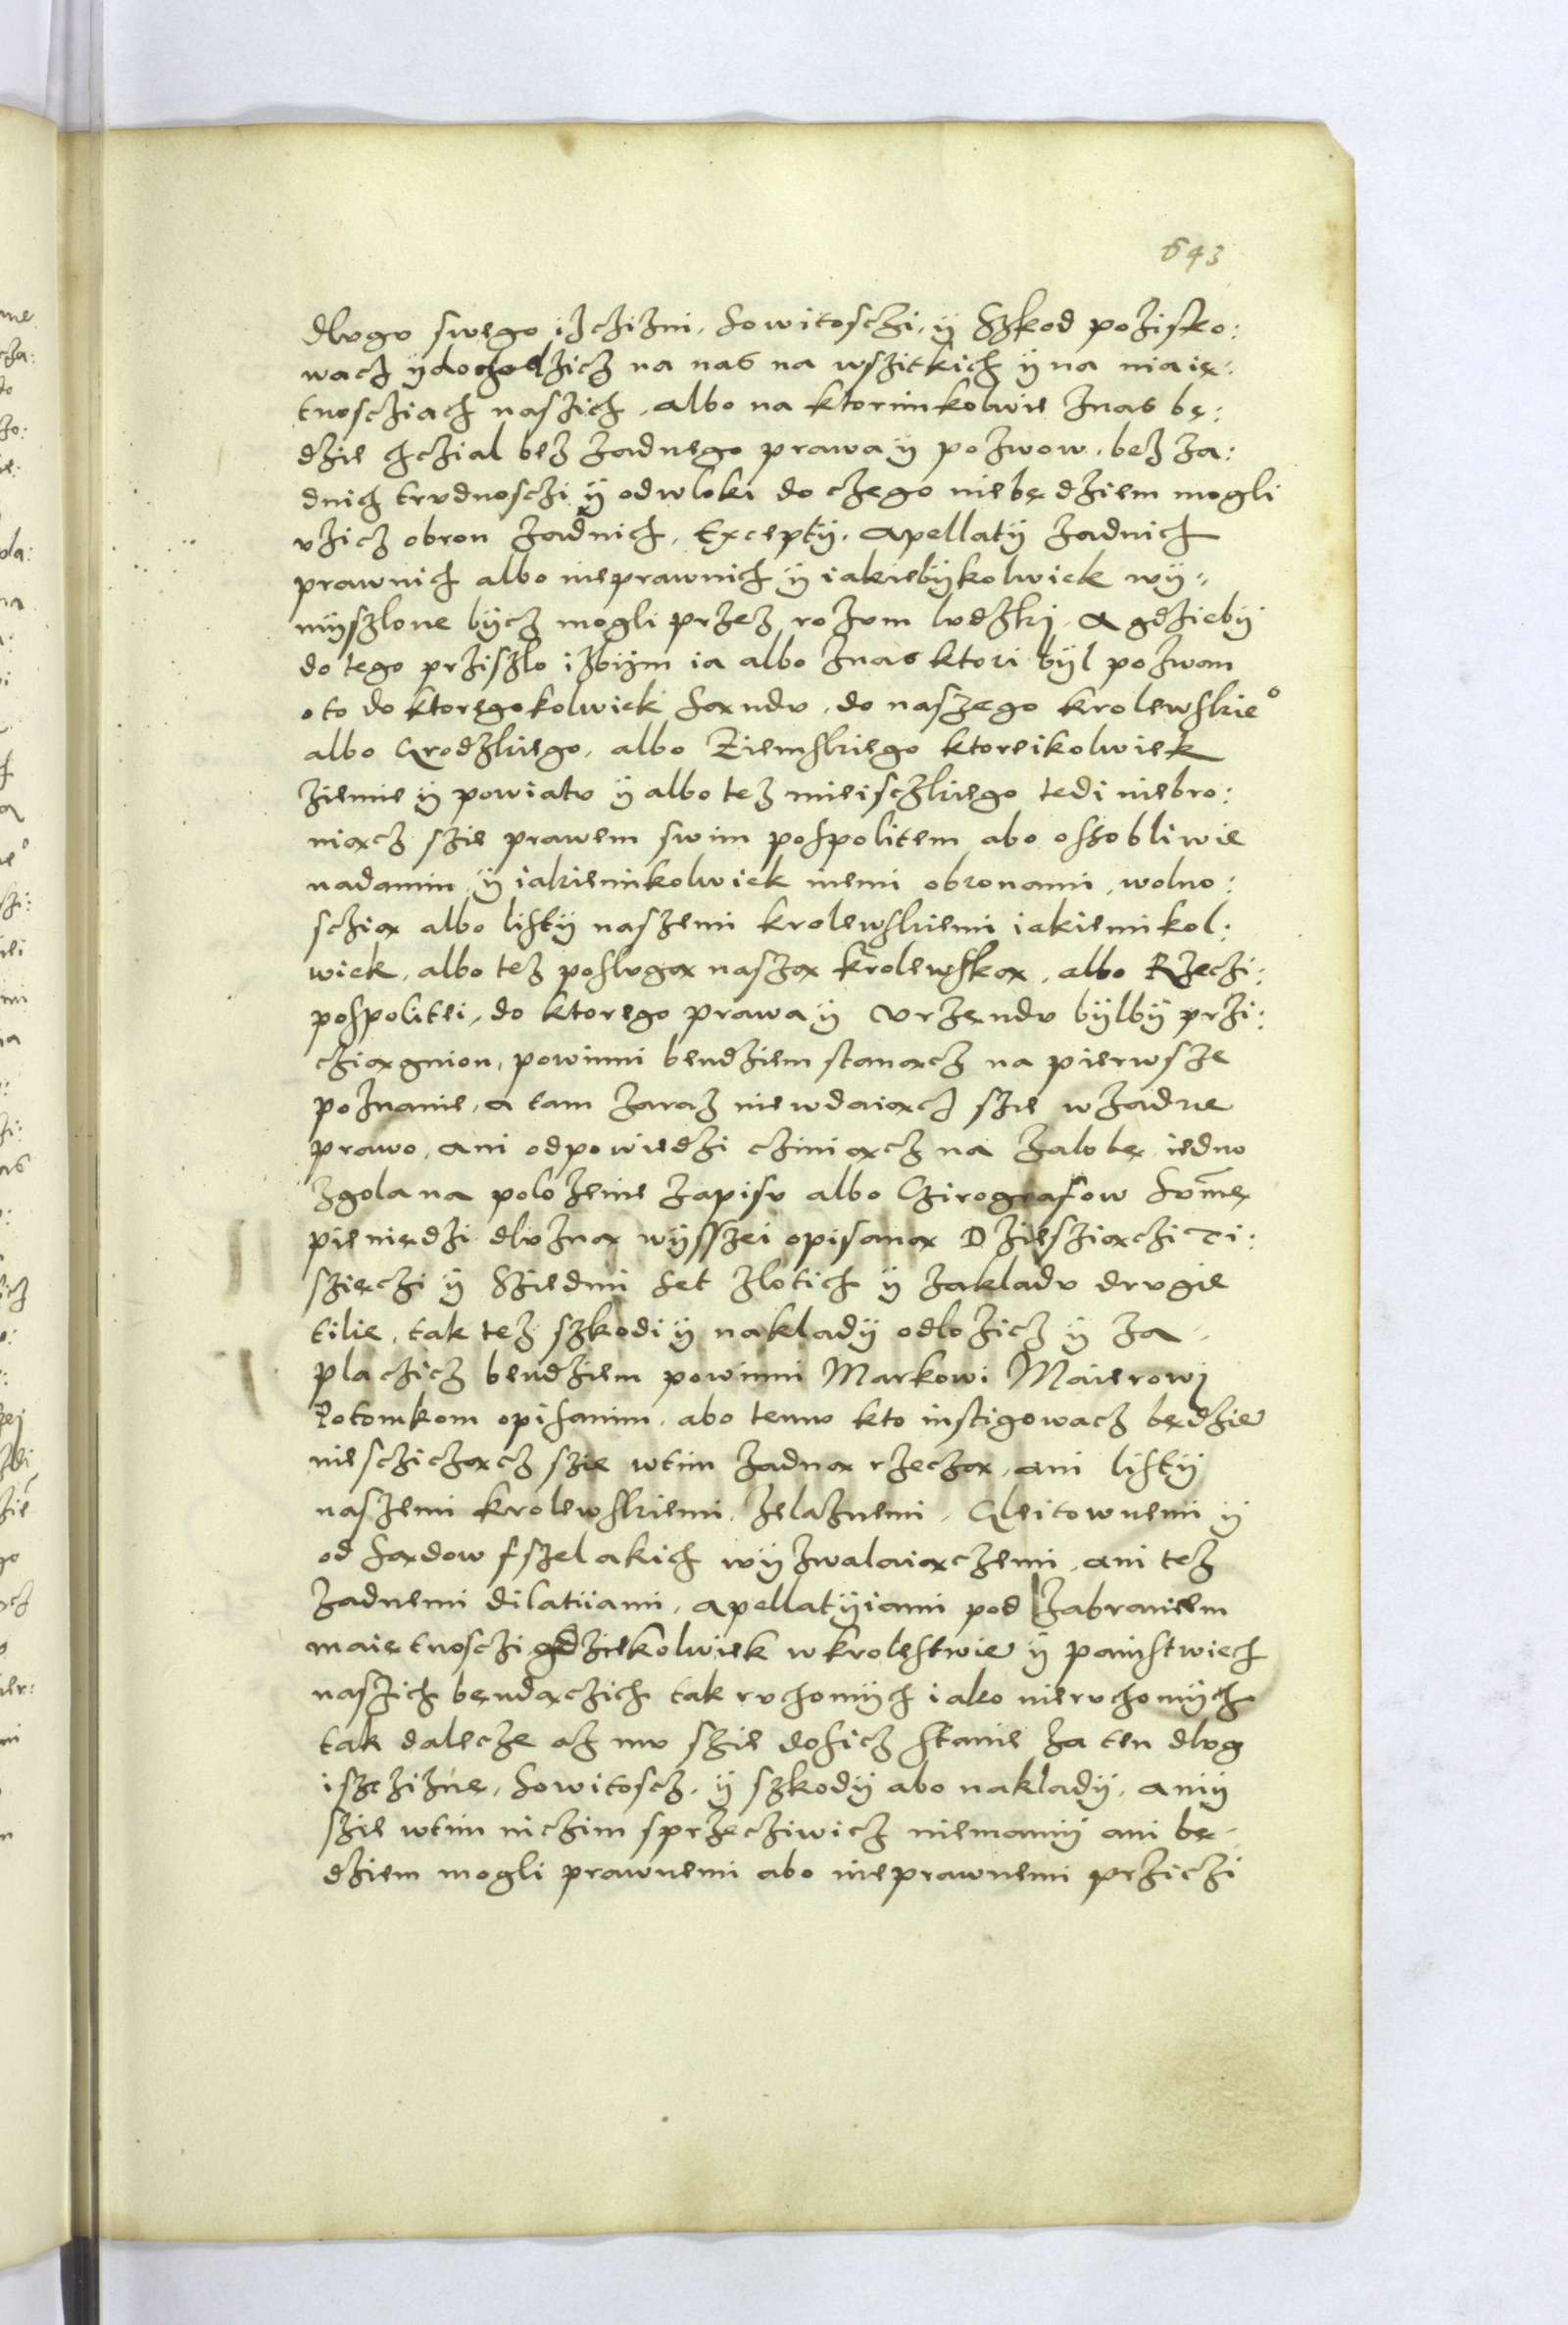 643
dlvgv swego iżcziżni, sowitosczi, ÿ Szkod pożisko:
wacż ÿ dochodżicz na nas na wszitkich ÿ na maię:
tnosćziach naszich, albo na ktorimkolwie żnas bę:
dżie chcżial bez żadnego prawa ÿ pożwow, bez ża:
dnich trvdnosczi ÿ odwloki do czego niebędżiem mogli
vżicz obron żadnich, Exceptÿ, Apellatÿ żadnich
prawnich albo nieprawnich ÿ iakiebÿkolwiek wÿ„
mÿszlone bÿcz mogli przez rożvm lvdżkj. A gdżiebÿ
do tego prżiszlo iżbÿm ia albo żnas ktori bÿl pożwan
oto do ktoregokolwiek sąndv, do naszego krolewskie°
albo Grodżkiego, albo Ziemskiego ktoreikolwiek
żiemie ÿ powiatv ÿ albo tez mieisczkiego tedi niebro:
niącz szie prawem swim pospolitem abo ossobliwie
nadanim ÿ iakiemikolwiek inemi obronami, wolno:
scżią albo listÿ naszemi krolewskiemi iakiemikol:
wiek, albo tez poslvgą naszą krolewską, albo Rżeczi:
pospolitei, do ktorego prawa ÿ Vrżęndv bÿlbÿ prżi:
cżiągnion, powinni bendżiem stanącz na pierwsze
pożnanie, a tam żaraz niewdaiącz szie wżadne
prawo, ani odpowiedżi cziniącz na żalobę, iedno
żgola na polożenie żapisv albo Czirografow sv̄mę
pieniędżi dlvżną wÿsszei opisaną Dżiesziączi Ti:
szięczi ÿ Sziedmi set żlotich ÿ żakladv drvgie
tilie, tak tez szkodi ÿ nakladÿ odlożicz ÿ ża„
placzicz bendżiem powinni Markowi Maierowj
Potomkom opisanim, abo temv kto instigowacz będżie
niesczicżącz szie wtim żadną rżeczą, ani listÿ
naszemi krolewskiemi, żelażnemi, Gleitownemi ÿ
od sądow fszelakich wÿżwalaiączemi, ani tez
żadnemi dilatiiami, apellatÿiami pod żabraniem
maiętnosczi gdżiekolwiek wkrolestwie ÿ panistwiech
naszich będączich tak rvchomÿch iako niervchomÿch
tak dalecze aż mv szie dosicz stanie ża ten dlvg
iszcżiżnę, sowitoscz, ÿ szkodÿ abo nakladÿ, aniÿ
szie wtim niczim sprżecziwicz niemamÿ ani bę„
dżiem mogli prawnemi abo nieprawnemi prżiczi